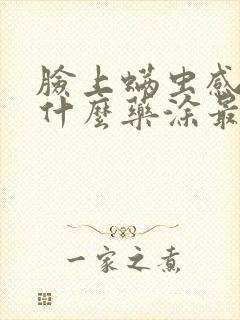 臉上螨虫感
什麼藥涂最
一家之煮